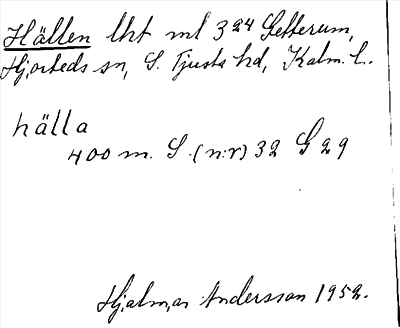 Hällen lht ml 3²⁴ Setterum,
Hjorteds sn, S. Tjusts hd, Kalm. l.
hälla
400 m. S. (n:r) 32 G 29
Hjalmar Andersson 1952.